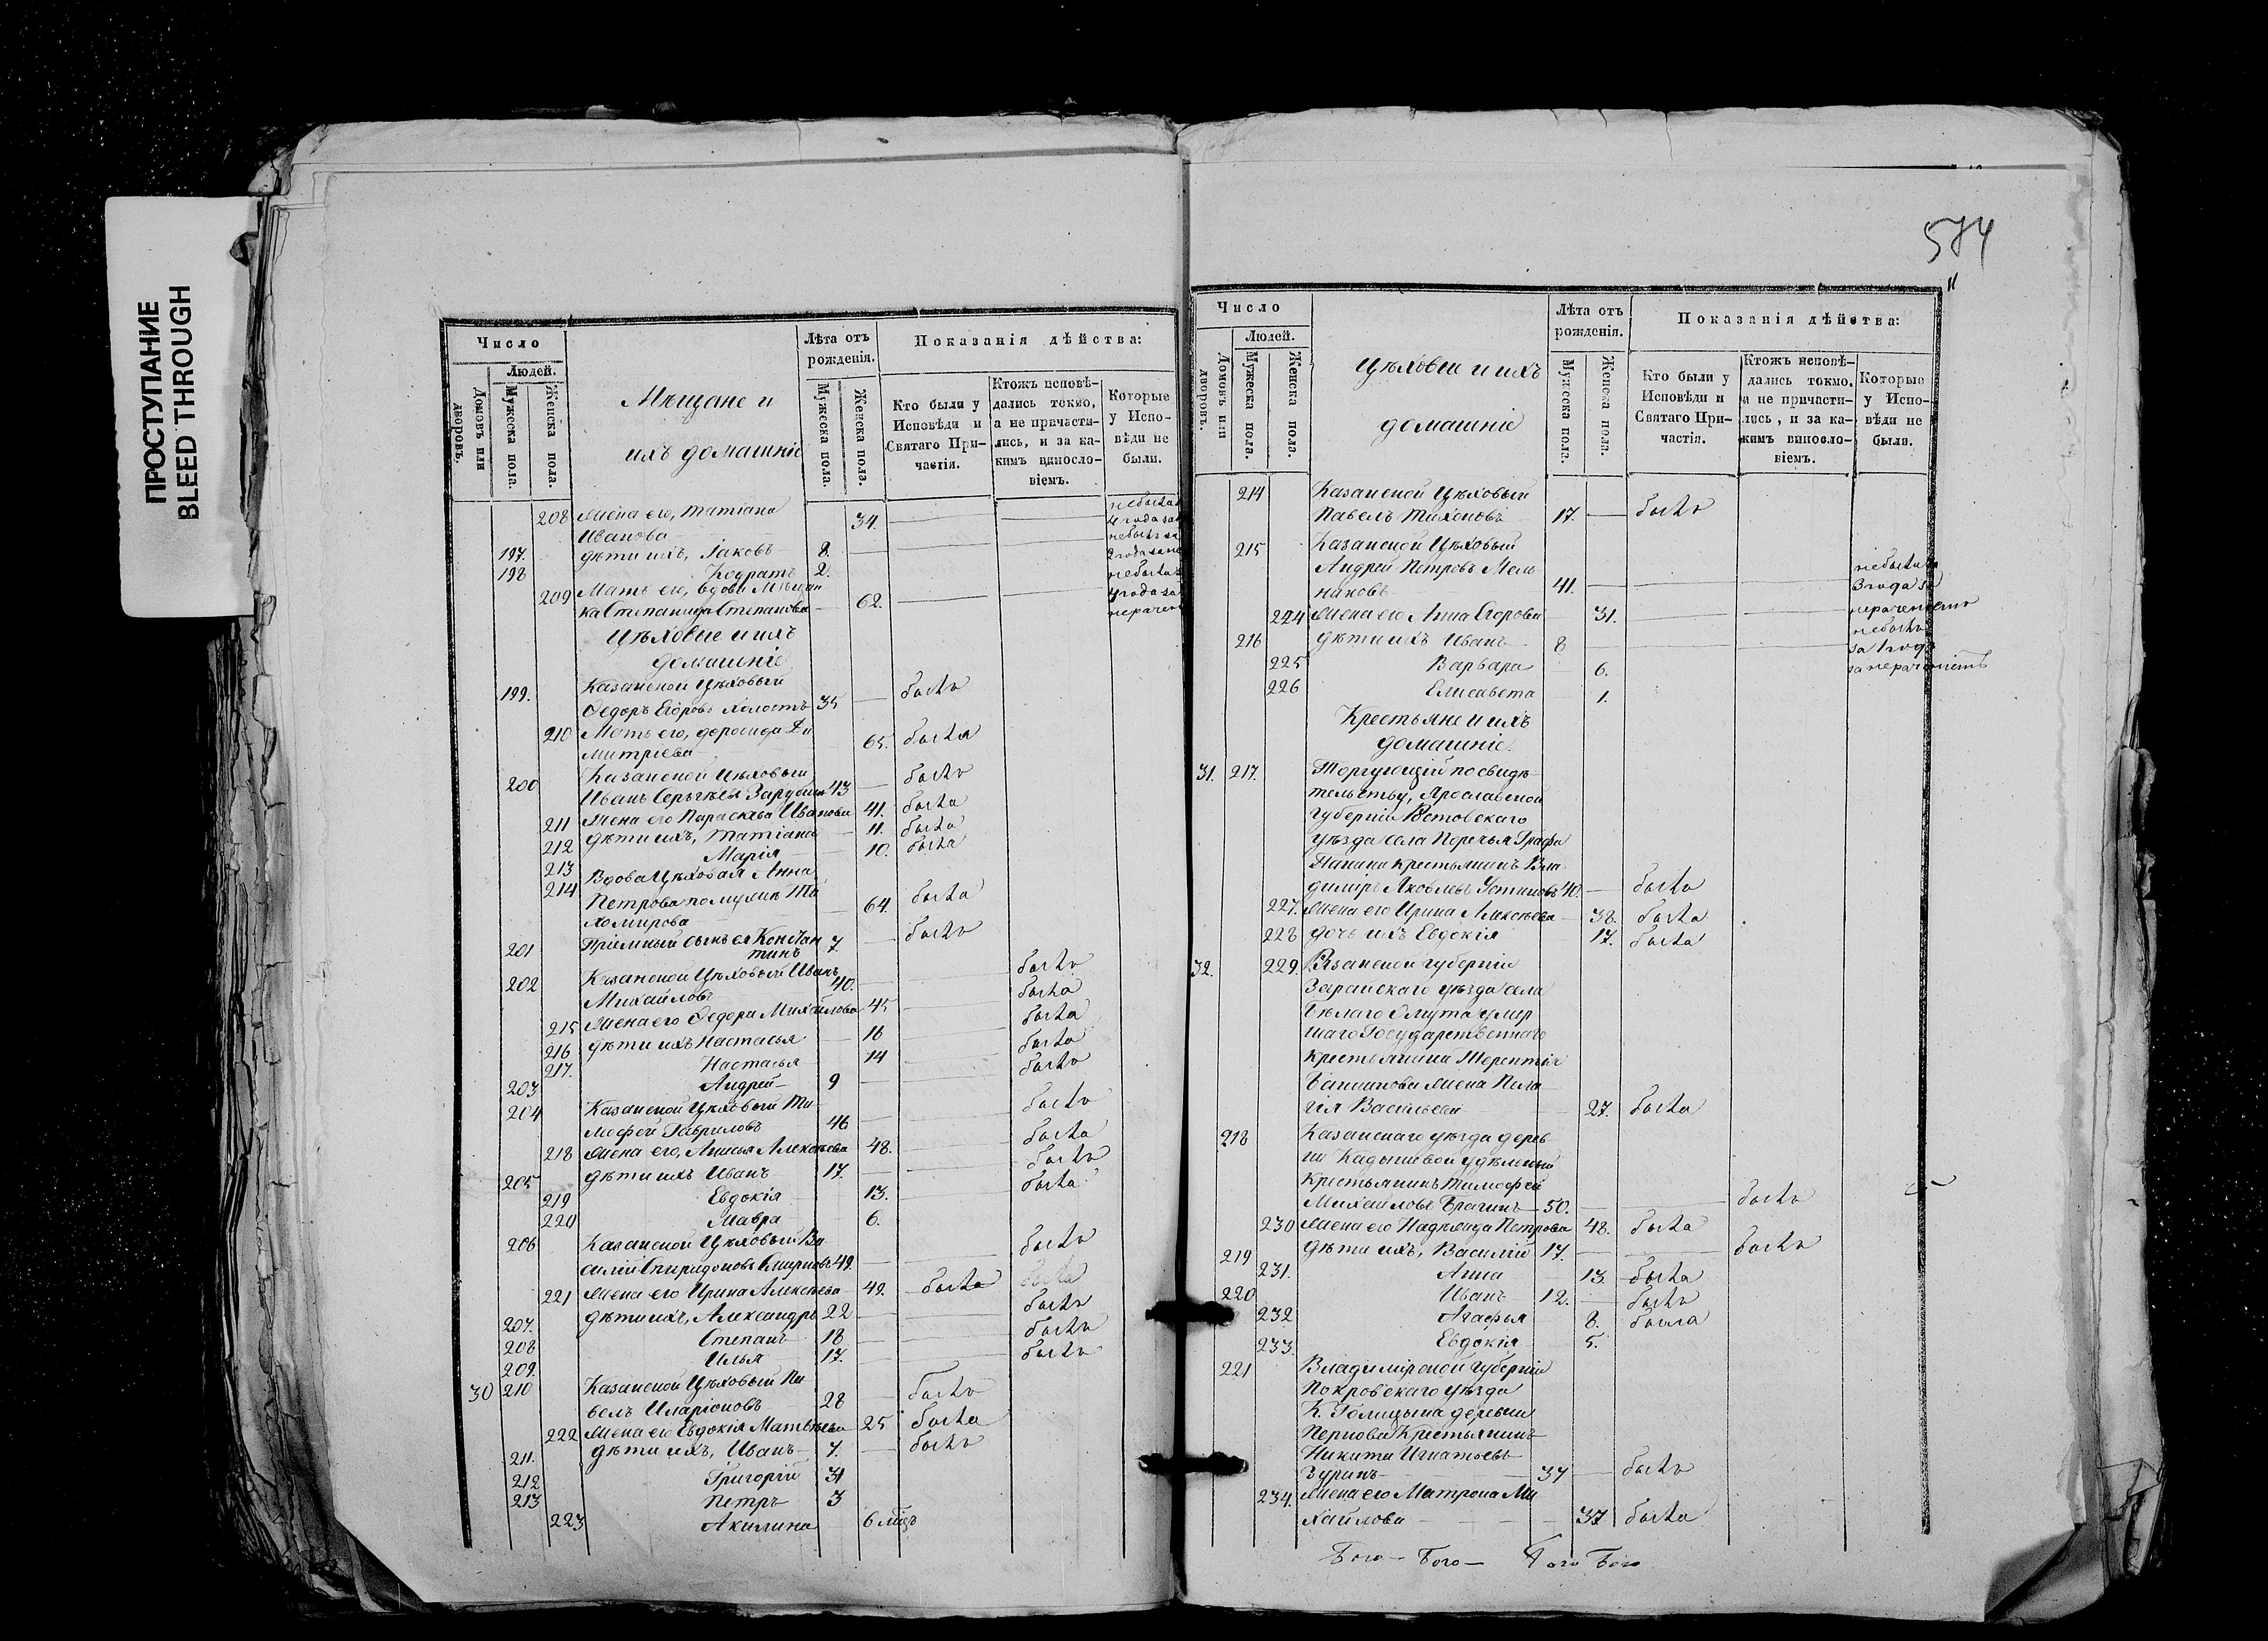 ПРОСТУПАНИЕ
BLEED THROUGH
Число
Людей.
Домовъ или дворовъ.
Мужеска пола.
Женска пола.
Мѣщане и
ихъ домашніе
Лѣта отъ рожденія.
Мужеска пола.
Женска пола.
Показанія дѣйства:
Кто были у Исповѣди и Святаго Причастія.
Ктожъ исповѣдались токмо, а не причастились, и за какимъ винословіемъ.
Которые у Исповѣди не были.
208 Жена его, Татіана
Иванова 34.
197. дѣти ихъ, Іаковъ 8.
198 Кодратъ 2.
209 Мать его, вдова Мѣщан
ка Степанида Степанова 62.
Цѣховые и ихъ
домашніе
199. Казанской Цѣховый
Ѳедоръ Егоровъ холостъ 35 былъ
210 Мать его, Дороѳида Ди
митріева 65. была
200 Казанской Цѣховый
Иванъ Сергѣевъ Зарубинъ 43 былъ
211 Жена его Параскева Иванова 41. была
212 дѣти ихъ, Татіана 11. была
213 Марія 10. была
214 Вдова Цѣховая Анна
Петрова по мужѣ Ти
хомирова 64. была
201 Пріемный сынъ ея Констан
тинъ 7. былъ
202 Казанской Цѣховый Иванъ
Михайловъ 40. былъ
215 Жена его Ѳедора Михайлова 45 была
216 дѣти ихъ Настасья 16 была
217. Настасья 14 была
203 Андрей 9 былъ
204 Казанской Цѣховый Ти
мофей Гавриловъ 46 былъ
218 Жена его, Анисья Алексѣева 48. была
205 дѣти ихъ Иванъ 17. былъ
219 Евдокія 13. была
220 Мавра 6.
206 Казанской Цѣховый Ва
силій Спиридоновъ Смирновъ 49. былъ
221 Жена его Ирина Алексѣева 49. была
207. дѣти ихъ, Александръ 22 былъ
208 Степанъ 18 былъ
209. Илья 17. былъ
30 210 Казанской Цѣховый Па
велъ Иларіоновъ 28 былъ
222 Жена его Евдокія Матвѣева 25 была
211. дѣти ихъ, Иванъ 7. былъ
212 Григорій
213 Петръ 3
223 Акилина 6 мѣц
574
Число
Людей.
Домовъ или дворовъ.
Мужеска пола.
Женска пола.
Цѣховые и ихъ
домашніе
Лѣта отъ рожденія.
Мужеска пола.
Женска пола.
Показанія дѣйства:
Кто были у Исповѣди и Святаго Причастія.
Ктожъ исповѣдались токмо, а не причастились, и за какимъ винословіемъ.
Которые у Исповѣди не были.
214 Казанской Цѣховый
Павелъ Тихоновъ 17. былъ
215 Казанской Цѣховый
Андрей Петровъ Мель
никовъ 41.
небыли
3 года за
нераченіемъ
224 Жена его Анна Егорова 31.
216 дѣти ихъ Иванъ 8
небылъ
за 1 годъ
за нераченіемъ
225 Варвара 6.
226 Елисавета 1.
Крестьяне и ихъ
домашніе.
31. 217. Торгующій по свидѣ
тельству, Ярославской
Губерніи Ростовскаго
уѣзда села Поречья Графа
Панина крестьянинъ Вла
димиръ Яковлевъ Устиновъ 40. былъ
227. Жена его Ирина Алексѣева 38. была
228 дочь ихъ Евдокія 17. была
32. 229. Рязанской губерніи
Зарайскаго уѣзда села
Бѣлаго Омута умер
шаго Государственнаго
крестьянина Терентія
жена Пела
гія Васильева 27. была
218 Казанскаго уѣзда дерев
ни Кадышевой удѣльный
крестьянинъ Тимофей
Михайловъ Брагинъ 50. былъ
230 Жена его Надежда Петрова 48. была
219 дѣти ихъ, Василій 17. былъ
231. Анна 13. была
220 Иванъ 12. былъ
232 Агафья 8. была
233. Евдокія 5.
221 Владимірской губерніи
Покровскаго уѣзда
К. Голицына деревни
Перновой Крестьянинъ
Никита Игнатьевъ
Зуринъ 37 былъ
234. Жена его Матрона Ми
хайлова 37 была